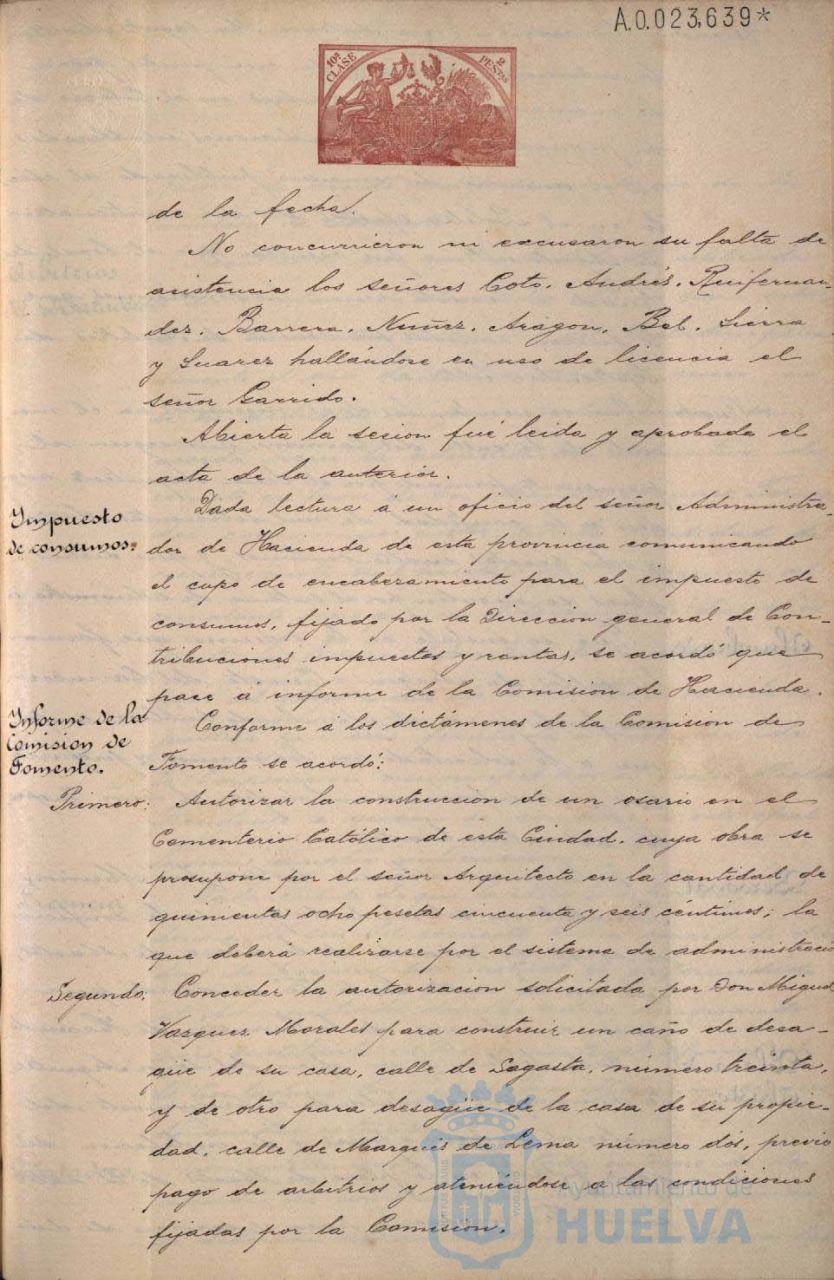 A.0.023,639*
10ª CLASE
2 PESTAS
de la fecha.
No concurrieron ni excusaron su falta de
asistencia los señores Coto, Andrés, Ruifernan-
dez, Barrera, Nuñez, Aragon, Bel, Sierra
y Suarez hallándose en uso de licencia el
señor Garrido.
Abierta la sesion fué leida y aprobada el
acta de la anterior.
Impuesto
de consumos.
Dada lectura á un oficio del señor Administra-
dor de Hacienda de esta provincia comunicando
el cupo de encabezamiento para el impuesto de
consumos, fijado por la Direccion general de Con-
tribuciones impuestos y rentas, se acordó que
pase á informe de la Comision de Hacienda.
Informe de la
Comision de
Fomento.
Conforme á los dictámenes de la Comision de
Fomento se acordó:
Primero: Autorizar la construccion de un osario en el
Cementerio Católico de esta Ciudad, cuya obra se
presupone por el señor Arquitecto en la cantidad de
quinientas ocho pesetas cincuenta y seis céntimos; la
que deberá realizarse por el sistema de administració
Segundo: Conceder la autorizacion solicitada por Don Miguel
Vazquez Morales para construir un caño de desa-
güe de su casa, calle de Sagasta, número treinta,
y de otro para desagüe de la casa de su propie-
dad, calle de Marqués de Lema número dós, previo
pago de arbitrios y ateniéndose a las condiciones
fijadas por la Comision.
Ayuntamiento de
HUELVA